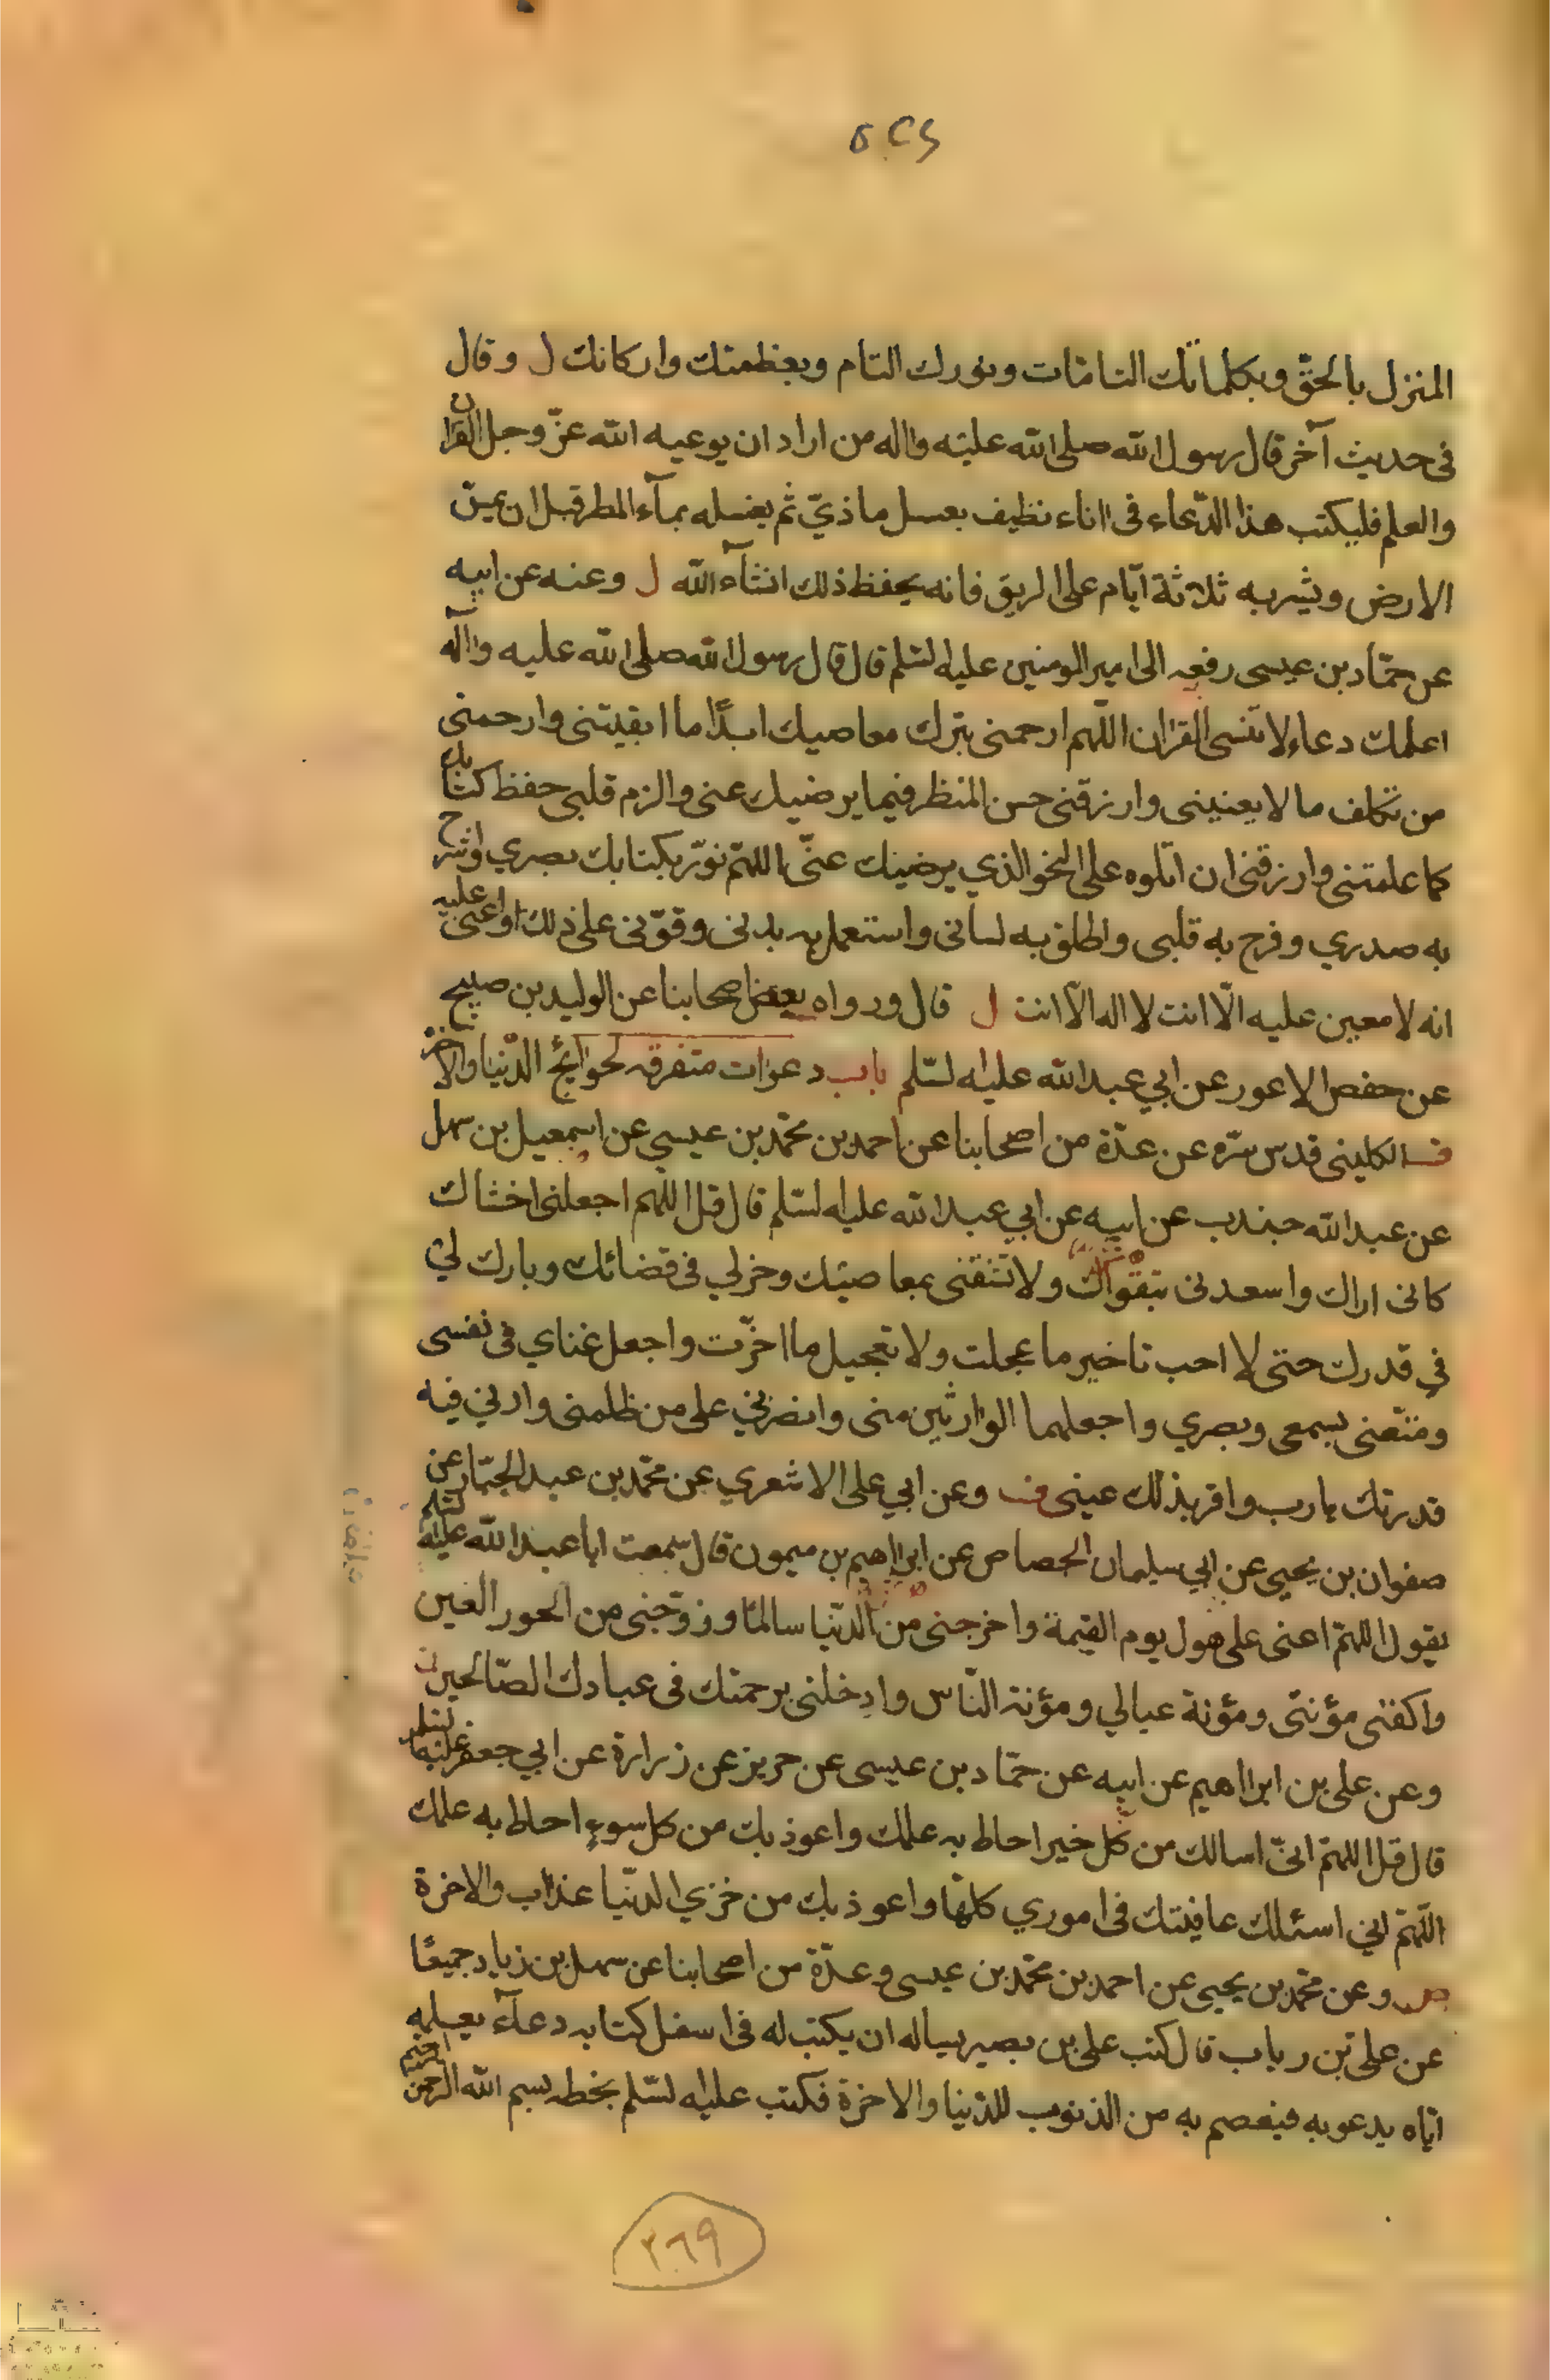 المنزل بالحقّ وبكلماتك التامّات وبنورك التام وبعظمتك واركانك ل وقال
فى حديث آخر قال رسول الله صلى الله عليه واله من اراد ان يوعيه الله عزّ وجل القران
والعلم فليكتب هذا الدّعاء فى اناء نظيف بعسل ماذيّ ثم يغسله بمآء المطر قبل ان يمسّ
الارض ويشربه ثلاثة ايّام على الريق فانه يحفظ ذلك انشآء الله ل وعنه عن ابيه
عن حمّاد بن عيسى رفعه الى امير المومنين عليه لسّلم قال قال رسول الله صلى الله عليه وآله
اعلمك دعاء لا تنسى القران اللّهم ارحمنى بترك معاصيك ابدًا ما ابقيتنى وارحمنى
من تكلف ما لا يعنينى وارزقنى حسن المنظر فيما يرضيك عنى والزم قلبى حفظ كتابك
كما علمتنى وارزقنى ان اتلوه على النحو الذي يرضيك عنّى اللهمّ نوّر بكتابك بصري واشرح
به صدري وفرح به قلبى واطلق به لسانى واستعمل به بدنى وقوّنى على ذلك واعنّى عليه
انه لا معين عليه الّا انت لا اله الّا انت ل قال ورواه بعض اصحابنا عن الوليد بن صبيح
عن حفص الاعور عن ابي عبد الله عليه لسّلم باب دعوات متفرقه لحوآئج الدّنيا والاخرة
فـ الكلينى قدس سرّه عن عدّة من اصحابنا عن احمد بن محمّد بن عيسى عن اسمعيل بن سهل
عن عبد الله جندب عن ابيه عن ابي عبد الله عليه لسّلم قال قل اللّهم اجعلنى اخشاك
كانى اراك واسعدنى بتقواك ولا تشقنى بمعاصيك وخر لي فى قضائك وبارك لي
في قدرك حتى لا احب تاخير ما عجلت ولا تعجيل ما اخّرت واجعل غناي فى نفسى
ومتّعنى بسمعى وبصري واجعلهما الوارثين منى وانصرني على من ظلمنى وارني فيه
قدرتك يا رب واقر بذلك عينى فـ وعن ابي على الاشعري عن محمّد بن عبد الجبّار عن
صفوان بن يحيى عن ابي سليمان الجصاص عن ابراهيم بن ميمون قال سمعت ابا عبد الله عليه لسّلم
يقول اللهمّ اعنى على هول يوم القيمة واخرجنى من الدّنيا سالمًا وزوّجنى من الحور العين
واكفنى مؤنتى ومؤنة عيالي ومؤنة النّاس وادخلنى برحمتك فى عبادك الصّالحين
وعن على بن ابراهيم عن ابيه عن حمّاد بن عيسى عن حريز عن زرارة عن ابي جعفر عليه لسّلم
قال قل اللهمّ انىّ اسالك من كل خير احاط به علمك واعوذ بك من كل سوء احاط به علمك
اللّهمّ اني اسئلك عافيتك فى اموري كلهّا واعوذ بك من خزي الدنّيا عذاب والاخرة
وعن محمّد بن يحيى عن احمد بن محمّد بن عيسى وعدّة من اصحابنا عن سهل بن زياد جميعًا
عن على بن رياب قال كتب على بن بصير يساله ان يكتب له فى اسفل كتابه دعآء يعلمه
ايّاه يدعو به فيعصم به من الذنوب للدّنيا والاخرة فكتب عليه لسّلم بخطه بسم الله الرحمن الرحيم
٣٦٩